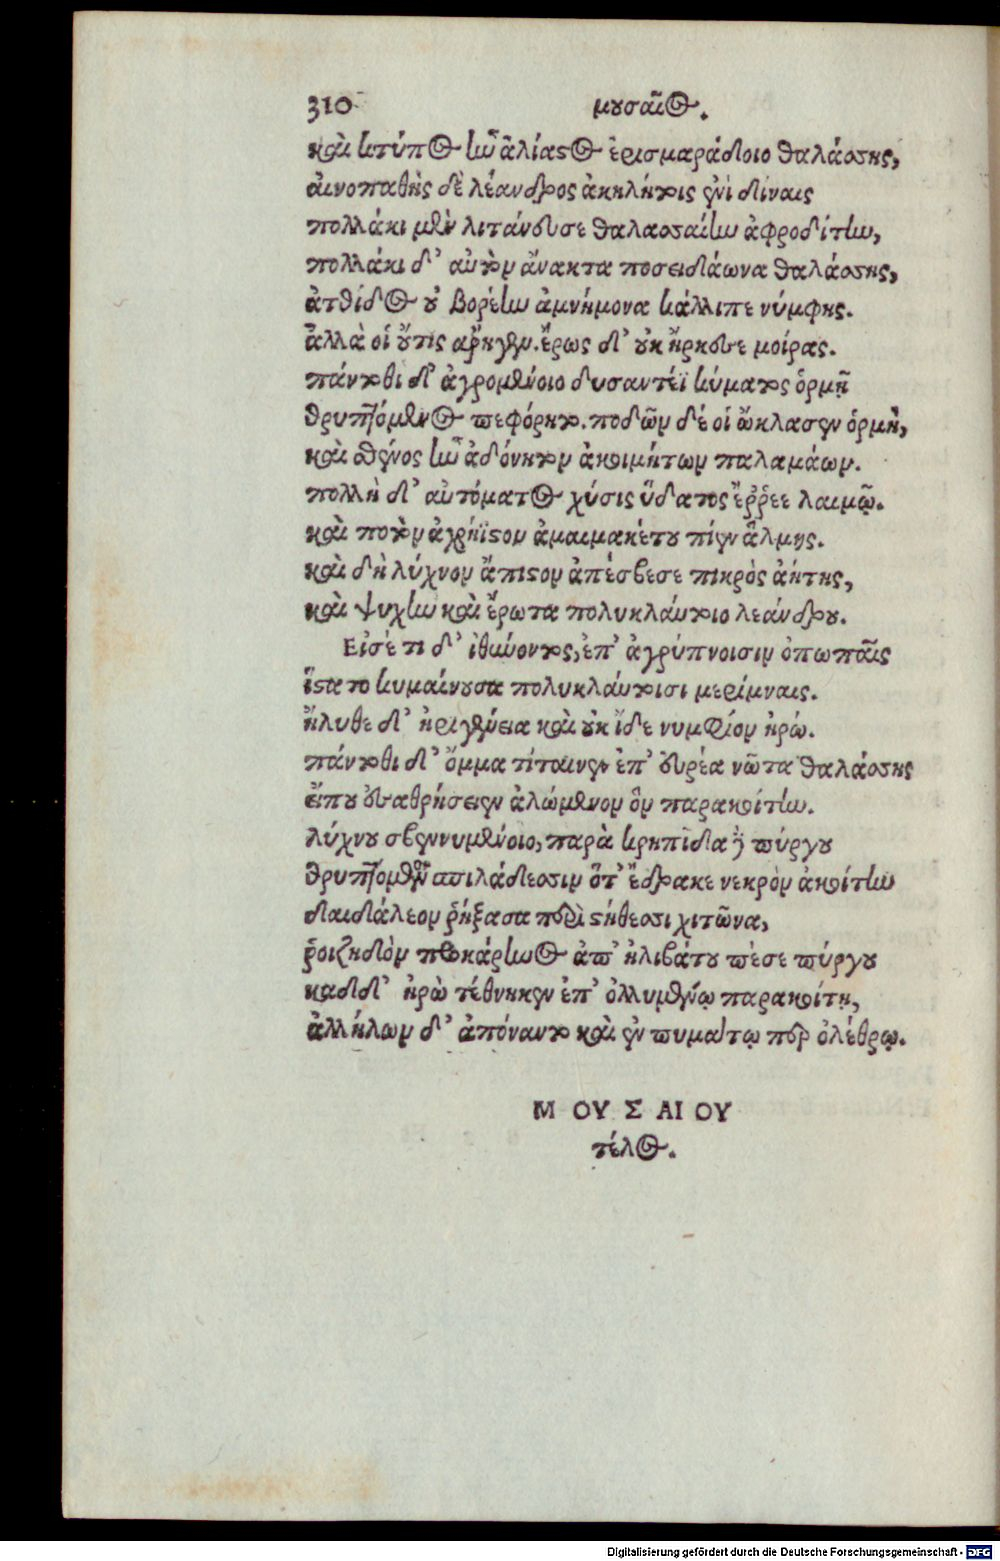 310 μουσαῖος.
καὶ κτύπος ἦν ἀλίαστος ἐρισμαράδοιο θαλάσσης,
αἰνοπαθὴς δὲ λέανδρος ἀκηλήτοις ἐνὶ δίναις
πολλάκι μὲν λιτάνευσε θαλασσαίην ἀφροδίτην,
πολλάκι δ' αὐτὸν ἄνακτα ποσειδάωνα θαλάσσης,
ἀτθίδος οὐ βορέην ἀμνήμονα κάλλιπε νύμφης.
ἀλλὰ οἱ οὔτις ἄρηγεν. ἔρως δ' οὐκ ἤρκεσε μοίρας.
πάντοθι δ' ἀγρομένοιο δυσαντέϊ κύματος ὁρμῇ
θρυπτόμενος πεφόρητο. ποδῶν δέ οἱ ὤκλασεν ὁρμὴ,
καὶ σθένος ἦν ἀδόνητον ἀκοιμήτων παλαμάων.
πολλὴ δ' αὐτόματος χύσις ὕδατος ἔῤῥεε λαιμῷ.
καὶ ποτὸν ἀχρήϊστον ἀμαιμακέτου πίεν ἅλμης.
καὶ δὴ λύχνον ἄπιστον ἀπέσβεσε πικρὸς ἀήτης,
καὶ ψυχὴν καὶ ἔρωτα πολυκλαύτοιο λεάνδρου.
Εἰσέτι δ' ἰθύνοντος, ἐπ' ἀγρύπνοισιν ὀπωπαῖς
ἵστατο κυμαίνουσα πολυκλαύτοισι μερίμναις.
ἤλυθε δ' ἠριγένεια καὶ οὐκ ἴδε νυμφίον ἡρώ.
πάντοθι δ' ὄμμα τίταινεν ἐπ' εὐρέα νῶτα θαλάσσης
εἴπου ἐσαθρήσειεν ἀλώμενον ὃν παρακοίτην.
λύχνου σβεννυμένοιο, παρὰ κρηπῖδα δὲ πύργου
θρυπτόμενον σπιλάδεσσιν ὅτ' ἔδρακε νεκρὸν ἀκοίτην
δαιδάλεον ῥήξασα περὶ στήθεσσι χιτῶνα,
ῥοιζηδὸν προκάρηνος ἀπ' ἠλιβάτου πέσε πύργου
καδδ' ἡρὼ τέθνηκεν ἐπ' ὀλλυμένῳ παρακοίτῃ,
ἀλλήλων δ' ἀπόναντο καὶ ἐν πυμάτῳ περ ὀλέθρῳ.
ΜΟΥΣΑΙΟΥ
τέλος.
Digitalisierung gefördert durch die Deutsche Forschungsgemeinschaft - DFG